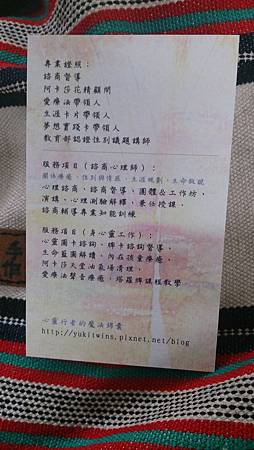 專業證照：
諮商督導
阿卡莎花精顧問
愛療法帶領人
生涯卡片帶領人
夢想實踐卡帶領人
教育部認證性別議題講師
服務項目（諮商心理師）：
關係療癒、性別與情感、生涯規劃、生命敘說
心理諮商、諮商督導、團體&工作坊、
演講、心理測驗解釋、兼任授課、
諮商輔導專業知能訓練
服務項目（身心靈工作）：
心靈圖卡諮詢、牌卡諮詢督導、
生命藍圖解讀、內在孩童療癒、
阿卡莎天堂油氣場清理、
愛療法聲音療癒、塔羅牌課程教學
心靈行者的魔法錦囊
http://yukitwins.pixnet.net/blog